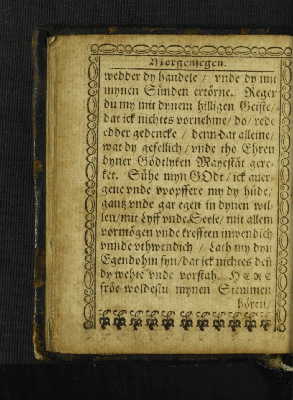 Morgensegen.
wedder dy handele / vnde dy mit
mynen Sünden ertörne. Reger
du my mit dynem hilligen Geiste /
dat ick nichtes vornehme / do / rede
edder gedencke / denn dat alleine /
wat dy gefellich / vnde tho Ehren
dyner Gödtlyken Mayestät gere-
ket. Sühe myn GOdt / ick auer-
geue vnde vpopffere my dy hüde /
gantz vnde gar egen in dynen wil-
len / mit Lyff vnde Seele / mit allem
vormögen vnde krefften inwendich
vnnde vthwendich / Lath my dyn
Egendohm syn / dat ick nichtes den
dy wehte vnde vorstah. HERE
fröe woldestu mynen Stemmen
hören /